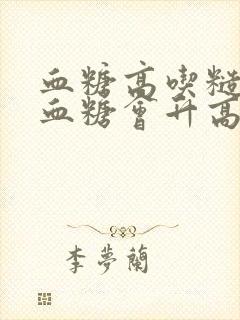 血糖高喫糙
血糖會升高
李夢蘭